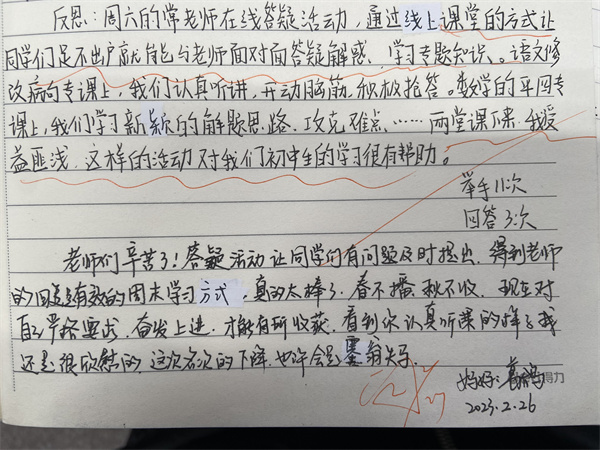 反思:周六的常老师在线答疑活动,通过线上课堂的方式让
同学们足不出户就能与老师面对面答疑解惑、学习专题知识。语文修
改病句专课上,我们认真听讲,开动脑筋,积极抢答。数学的平四专
课上,我们学习新颖的解题思路,攻克难点……两堂课下来,我受
益匪浅,这样的活动对我们初中生的学习很有帮助。
举手11次
回答3次
老师们辛苦了!答疑活动让同学们有问题及时提出,得到老师
的回复是有效的周末学习方式,真的太棒了。春不播,秋不收,现在对
自己严格要求,奋发上进,才能有所收获,看到你认真听课的样子我
还是很欣慰的,这次名次的下降,也许会是塞翁失马。
妈妈:
得力
2023.2.26